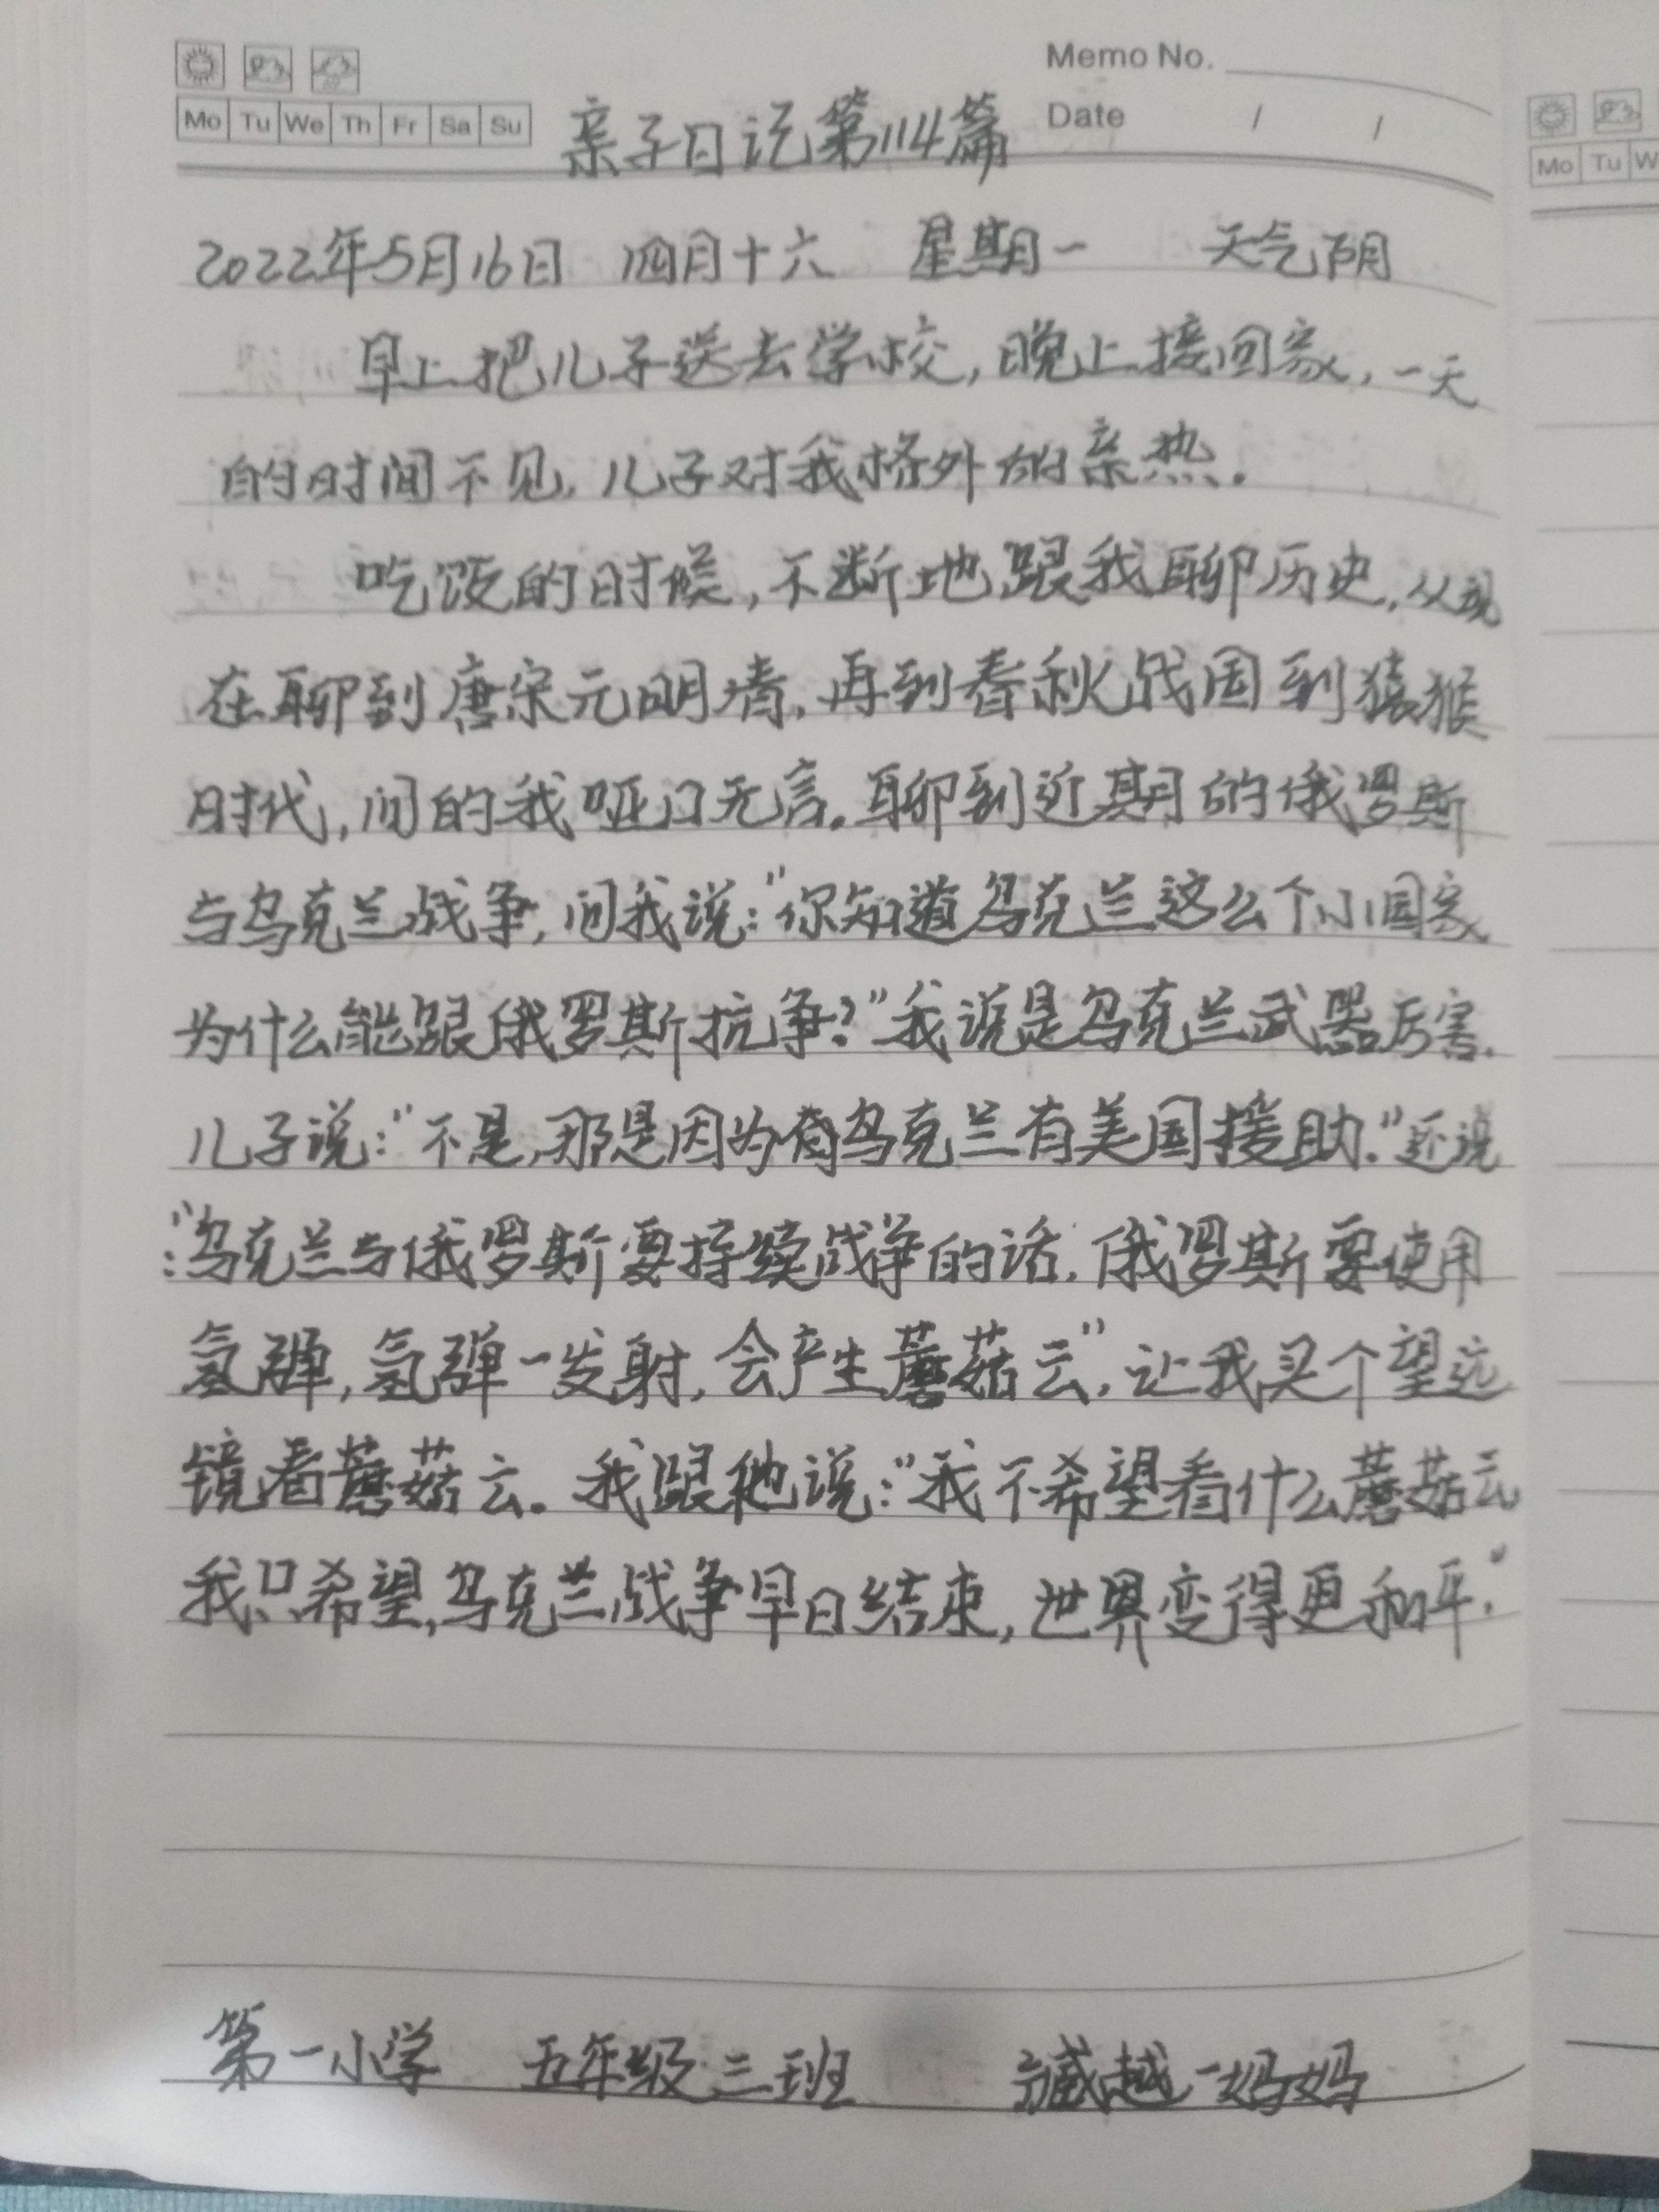 Memo No.
Mo Tu We Th Fr Sa Su
Date / /
亲子日记第114篇
2022年5月16日 四月十六 星期一 天气阴
早上把儿子送去学校,晚上接回家,一天
的时间不见,儿子对我格外的亲热.
吃饭的时候,不断地跟我聊历史,从现
在聊到唐宋元明清,再到春秋战国到猿猴
时代,问的我哑口无言.聊到近期的俄罗斯
与乌克兰战争,问我说:"你知道乌克兰这么个小国家
为什么能跟俄罗斯抗争?"我说是乌克兰武器厉害.
儿子说:"不是,那是因为乌克兰有美国援助."还说
:"乌克兰与俄罗斯要持续战争的话,俄罗斯要使用
氢弹,氢弹一发射,会产生蘑菇云",让我买个望远
镜看蘑菇云.我跟他说:"我不希望看什么蘑菇云
我只希望,乌克兰战争早日结束,世界变得更和平."
第一小学 五年级三班 越一妈妈
Mo Tu W